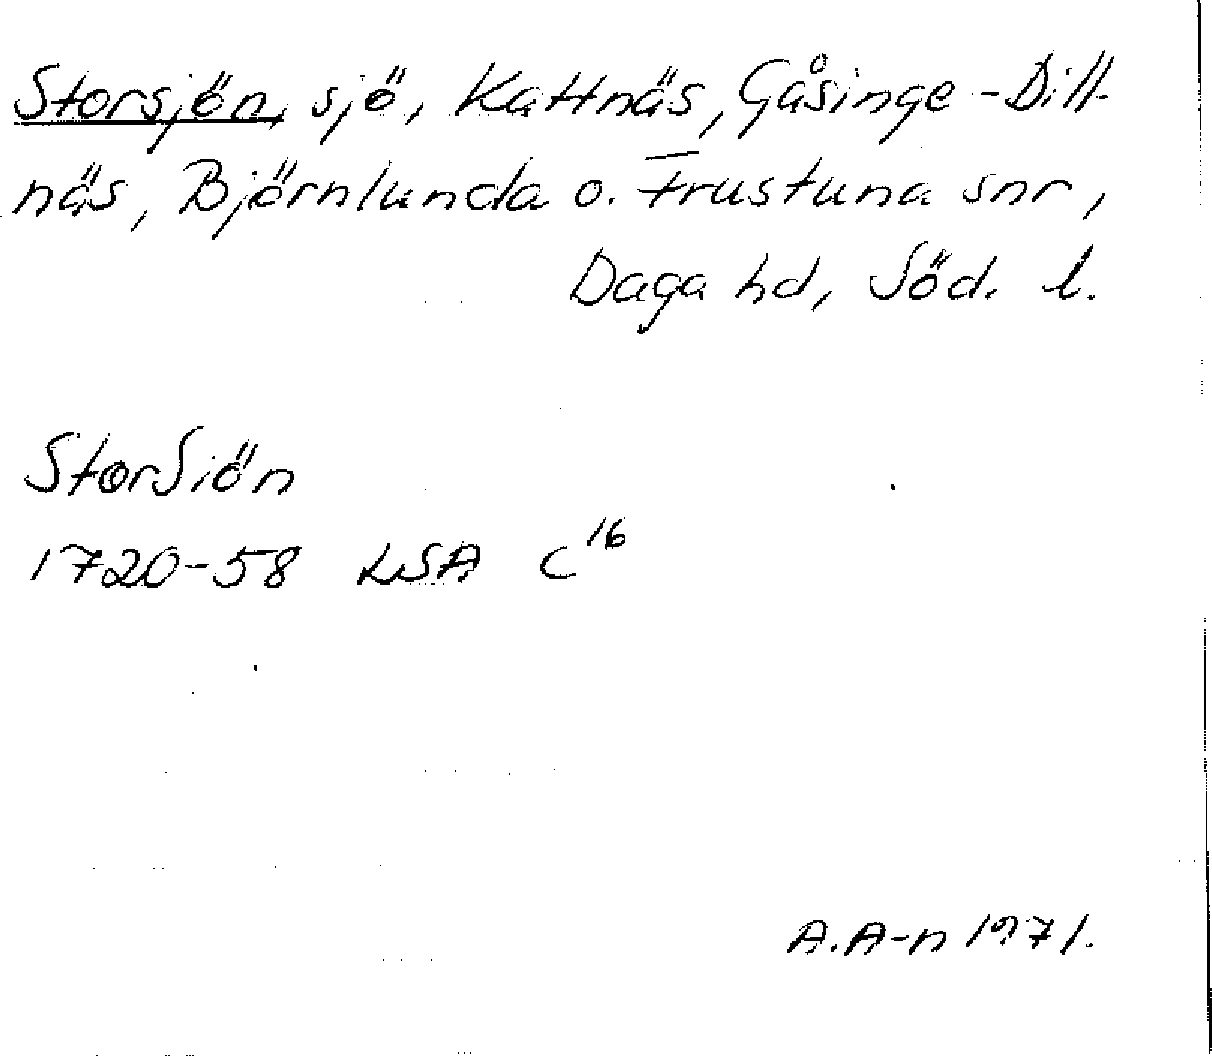 Storsjön, sjö, Kattnäs, Gåsinge-Dill-
näs, Björnlunda o. Frustuna snr,
Daga hd, Söd. l.
StorSiön
1720-58 LSA C¹⁶
A.A-n 1971.